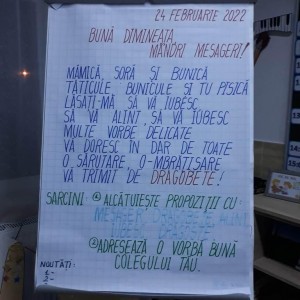 24 FEBRUARIE 2022
BUNĂ DIMINEAȚA,
MÂNDRI MESAGERI!
MĂMICĂ, SORĂ ȘI BUNICĂ
TĂTICULE, BUNICULE ȘI TU PISICĂ
LĂSAȚI-MĂ SĂ VĂ IUBESC
SĂ VĂ ALINT, SĂ VĂ IUBESC
MULTE VORBE DELICATE
VĂ DORESC ÎN DAR DE TOATE
O SĂRUTARE, O-MBRĂȚIȘARE
VĂ TRIMIT DE DRAGOBETE!
SARCINI: 1 ALCĂTUIEȘTE PROPOZIȚII CU:
2 ADRESEAZĂ O VORBĂ BUNĂ
COLEGULUI TĂU.
NOUTĂȚI:
1-
2-